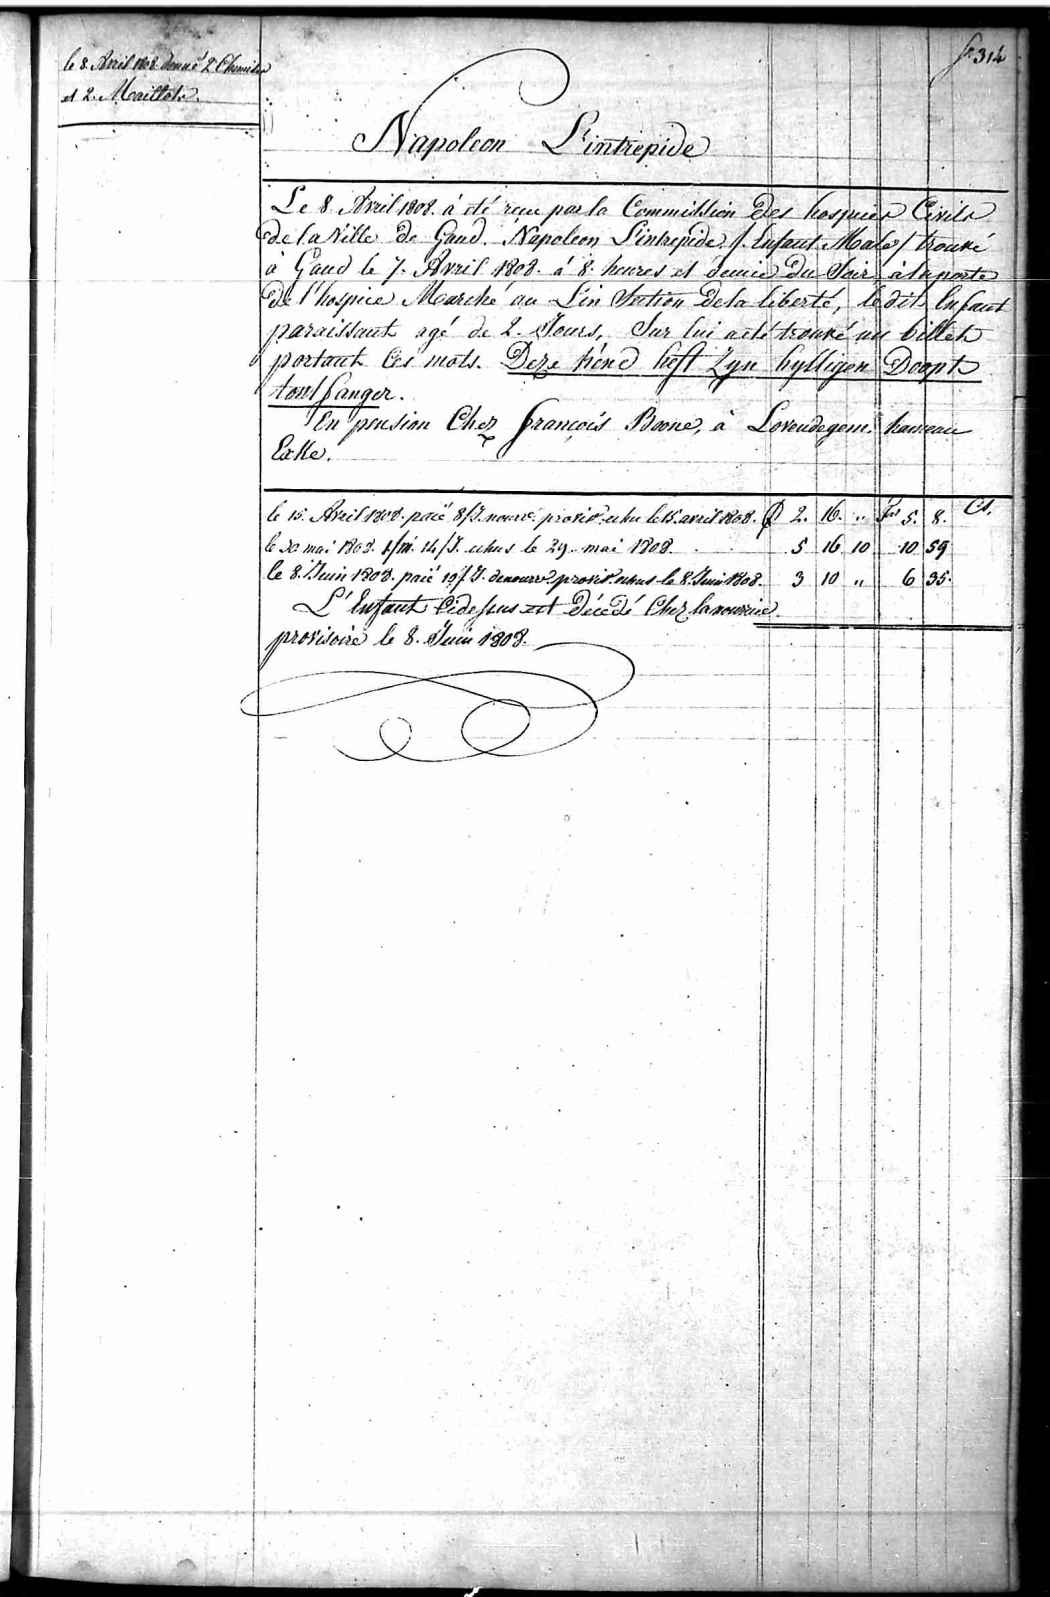 le 8. Avril 1808 donné 2 Chemises
et 2. Maillots.
fo. 314
Napoleon L'intrepide
Le 8. Avril 1808. á été reçu par la Commission des hospices Civils
de la Ville de Gand. Napoleon L'intrepide /. Enfant Male / trouvé
à Gand le 7. Avril 1808. á 8. heures et demie du Soir à la porte
de l'hospice Marché au Lin Section de la liberté, le dit Enfant
paraissant agé de 2. Jours, Sur lui a été trouvé un billet
portant Ces mots. Deze kend heft Zyn hylligen Doopt
tontfanger.
En pension Chez françois Boone, à Lovendegem. hameau
Exke.
le 15. Avril 1808. paié 8/J. nourre. provisre. echu le 15. avril 1808. 2. 16. „ frs 5. 8. Cs.
le 30 mai 1808. 1/m. 14/J. echus le 29. mai 1808. 5 16 10 10 59
le 8. Juin 1808. paié 10/J. de nourre. provisre. echus le 8. Juin 1808. 3 10 „ 6 35.
L'Enfant Cidessus est Décédé Chez la nourrice
provisoire le 8. Juin 1808.